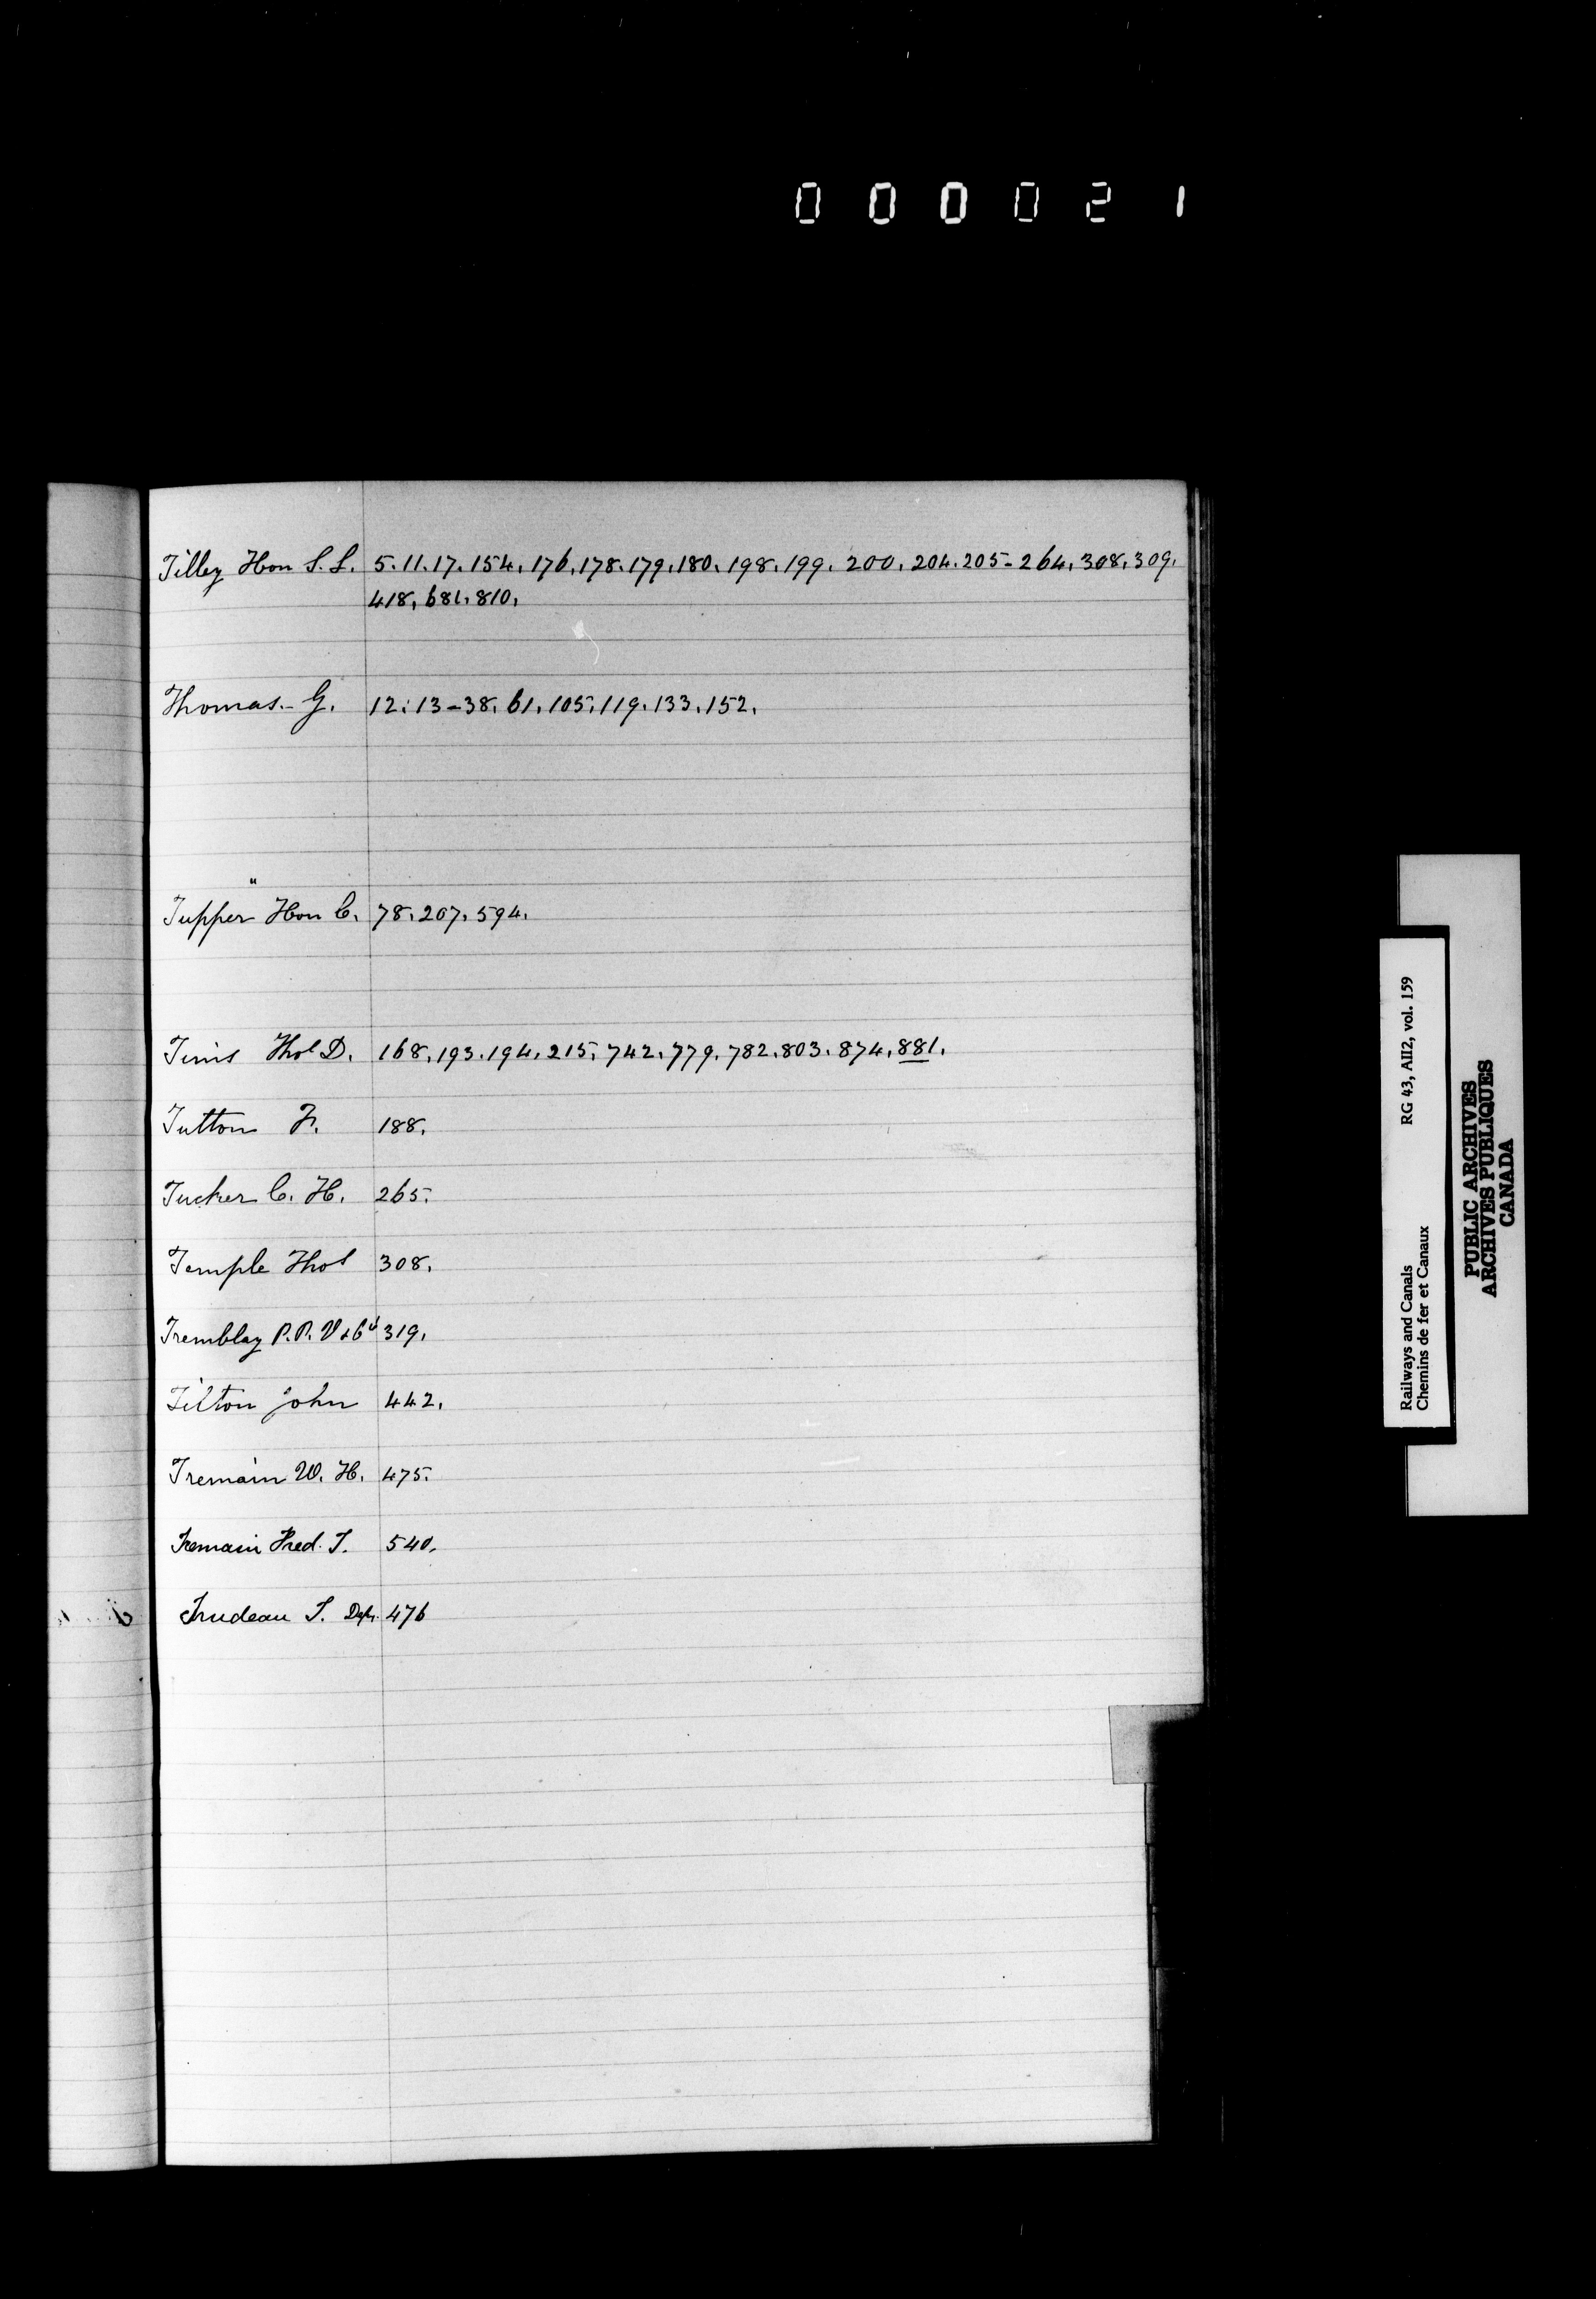 000021
Tilley Hon S. L. 5. 11. 17. 154. 176. 178. 179. 180. 198. 199. 200. 204. 205- 264. 308. 309.
418. 681. 810.
Thomas. G. 12. 13-38. 61. 105. 119. 133. 152.
"
Tupper Hon C. 78. 207. 594.
Tims Thos D. 168. 193. 194. 215. 742. 779. 782. 803. 874. 881.
Tutton F. 188.
Tucker C. H. 265.
Temple Thos 308.
Tremblay P. P. V & Co 319.
Tilton John 442.
Tremain W. H. 475.
Tremain Fred. T. 540.
Trudeau T. Depr. 476
Railways and Canals RG 43, AII2, vol. 159
Chemins de fer et Canaux
PUBLIC ARCHIVES
ARCHIVES PUBLIQUES
CANADA